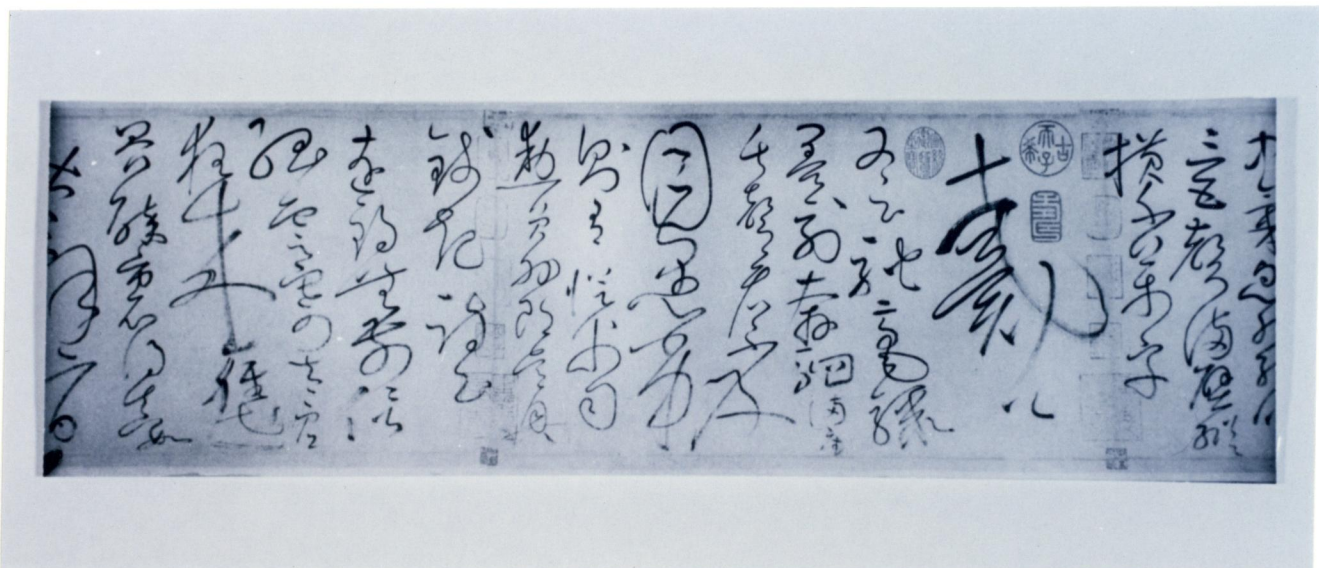 忽然絕叫
三五聲滿壁縱
橫千萬字
戴公
又云馳毫驟
墨列奔駟滿座
失聲看不及
目愚劣
則有從父司
勳員外郎吳興
錢起詩云
遠錫無前侶
孤雲寄太虛
狂來輕世
界醉裏得真如
古希天子